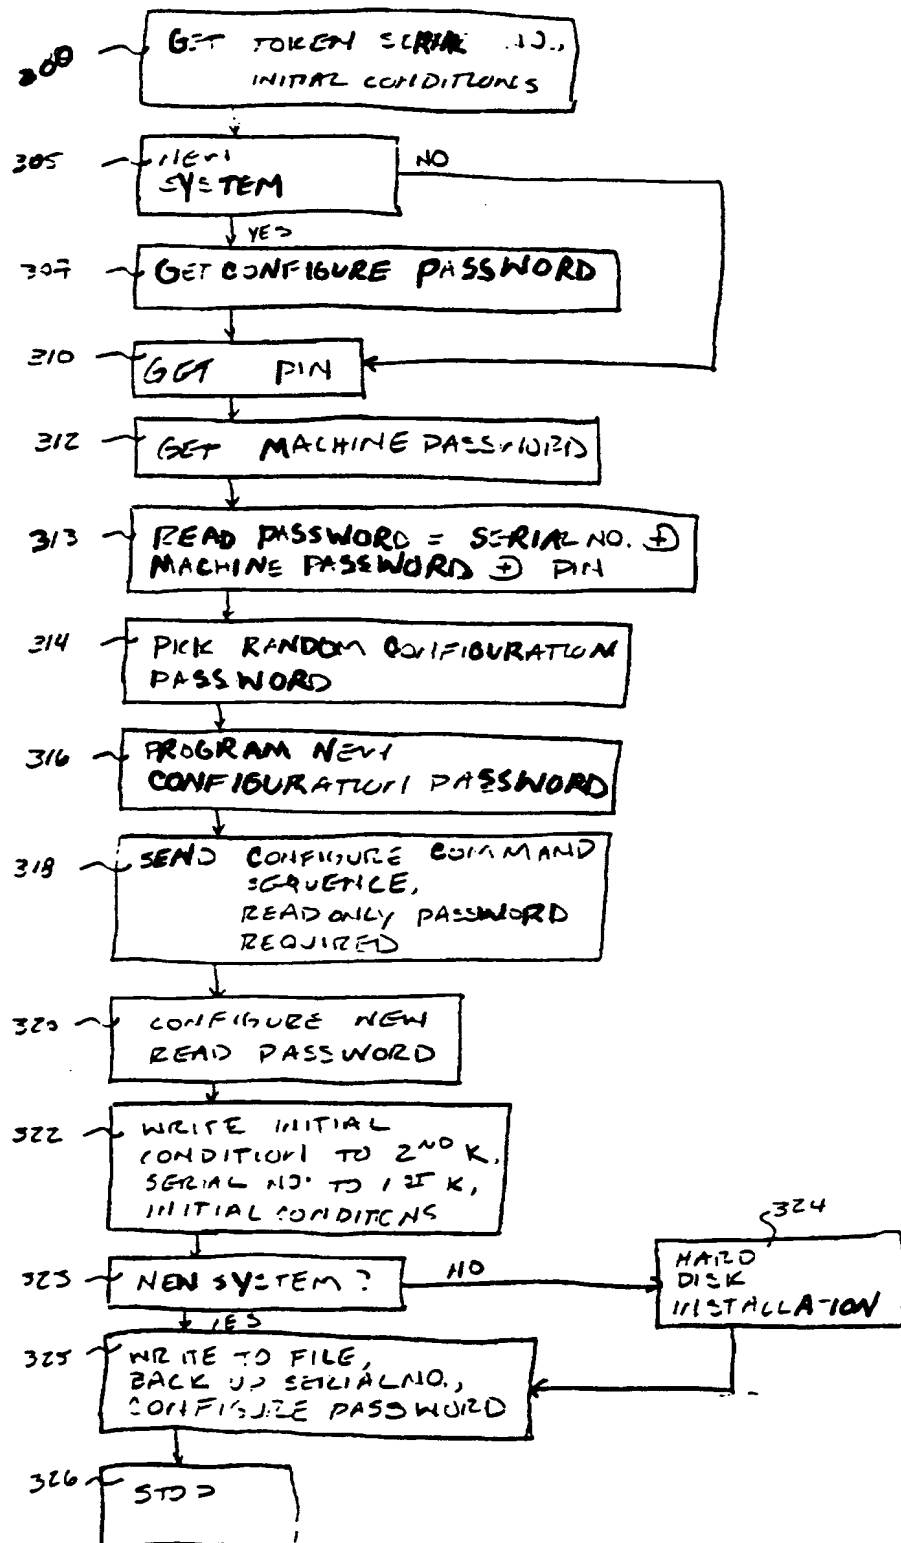 300
GET TOKEN SERIAL NO.,
INITIAL CONDITIONS
305
NEW
SYSTEM
NO
YES
307
GET CONFIGURE PASSWORD
310
GET PIN
312
GET MACHINE PASSWORD
313
READ PASSWORD = SERIAL NO. ⊕
MACHINE PASSWORD ⊕ PIN
314
PICK RANDOM CONFIGURATION
PASSWORD
316
PROGRAM NEW
CONFIGURATION PASSWORD
318
SEND CONFIGURE COMMAND
SEQUENCE,
READ ONLY PASSWORD
REQUIRED
320
CONFIGURE NEW
READ PASSWORD
322
WRITE INITIAL
CONDITION TO 2ND K,
SERIAL NO. TO 1ST K,
INITIAL CONDITONS
323
NEW SYSTEM?
NO
324
HARD
DISK
INSTALLATION
YES
325
WRITE TO FILE,
BACK UP SERIAL NO.,
CONFIGURE PASSWORD
326
STOP